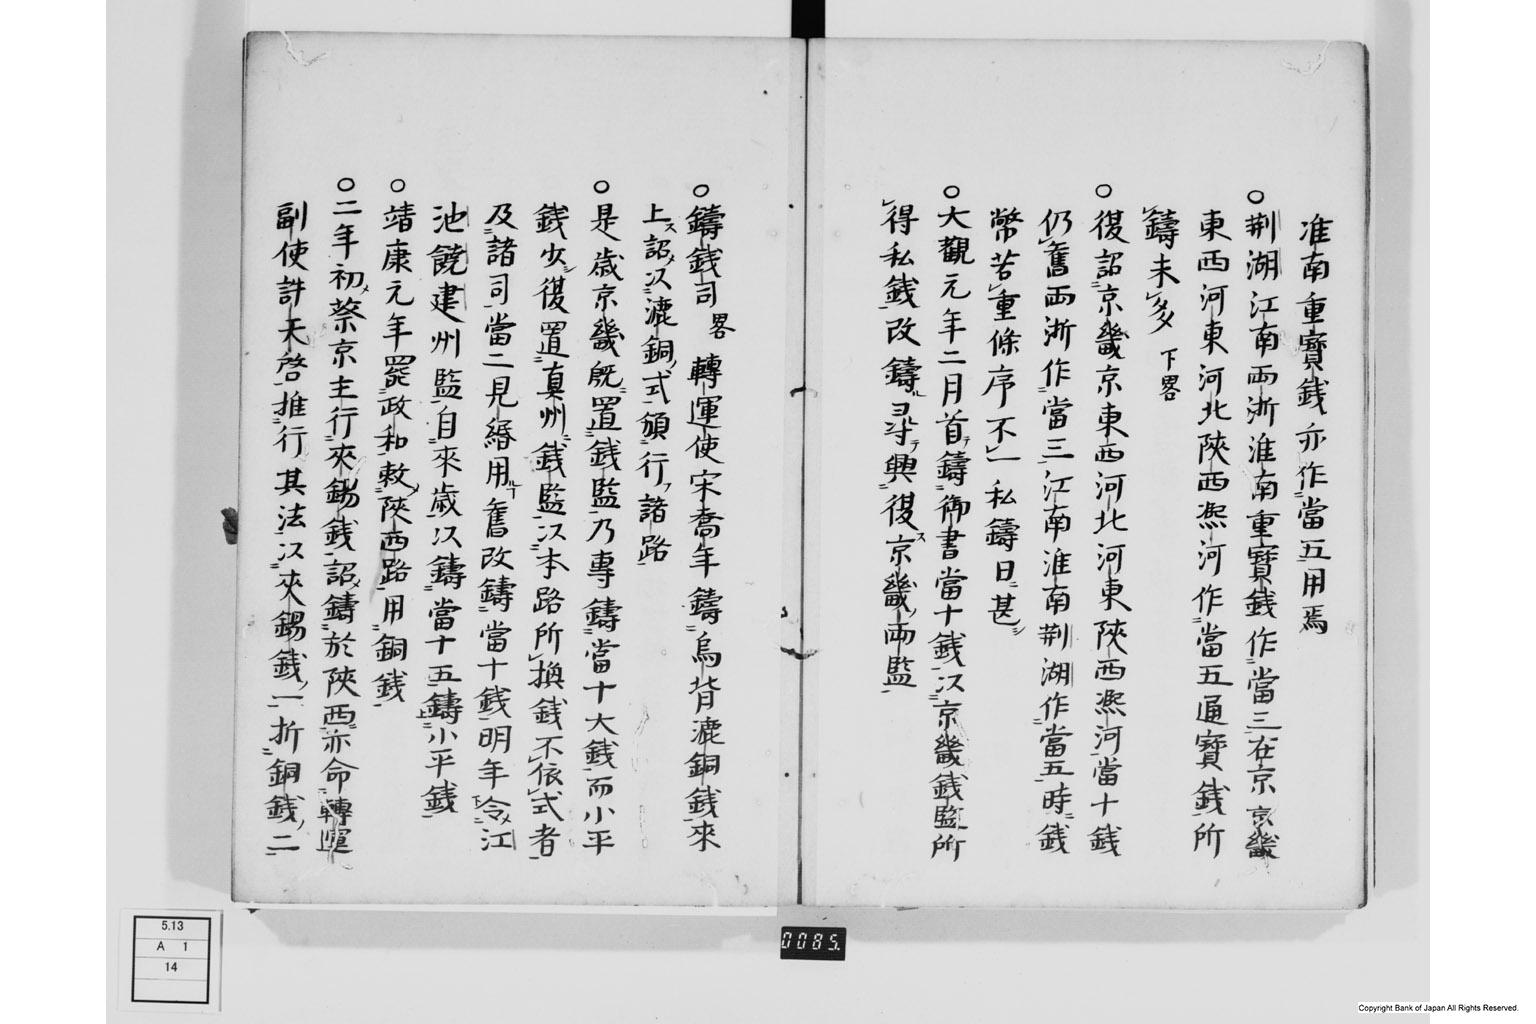 淮南重寶銭亦作當五用焉
○荆湖江南両浙淮南重寶銭作當三在京京畿
東西河東河北陝西熈河作當五通寶銭所
鑄未多　下畧
○復詔京畿京東西河北河東陝西熈河當十銭
仍舊両浙作當三江南淮南荆湖作當五時銭
幣苦重條序不一私鑄日甚
○大觀元年二月首鑄御書當十銭以京畿銭監所
得私銭改鑄尋興復京畿両監
○鑄銭司　畧　轉運使宋喬年鑄烏背漉銅銭来
上詔以漉銅式頒行諸路
○是歳京畿既置銭監乃專鑄當十大銭而小平
銭少復置真州銭監以本路所換銭不依式者
及諸司當二見緡用舊改鑄當十銭明年令江
池饒建州監自来歳以鑄當十五鑄小平銭
○靖康元年罷政和敕陝西路用銅銭
○二年初蔡京主行夾錫銭詔鑄於陝西亦命轉運
副使許天啓推行其法以夾錫銭一折銅銭二
5.13
A 1
14
0085.
Copyright Bank of Japan All Rights Reserved.